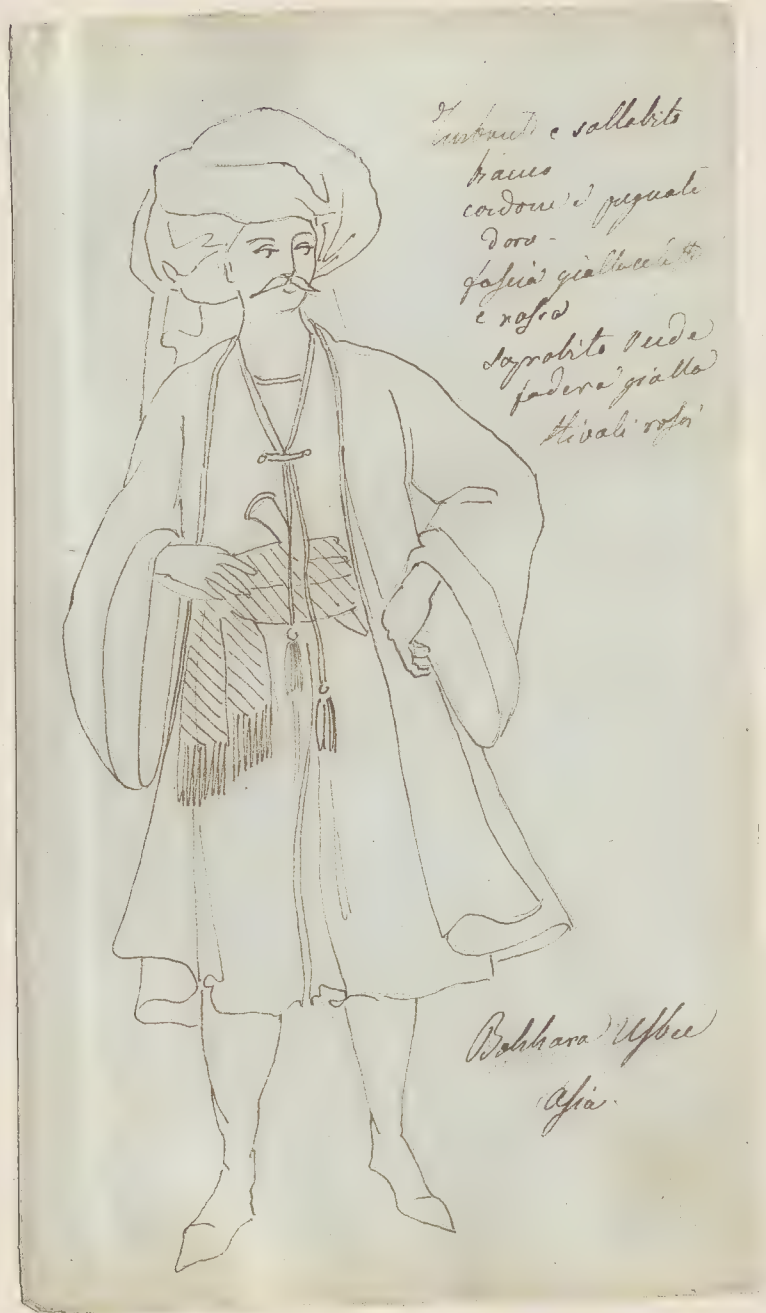 Turbante e sottabito
bianco
cordone e pugnale
d'oro -
fascia gialla
e rossa
soprabito verde
fodera gialla
stivali rossi
Bokhara Usbec
Asia.